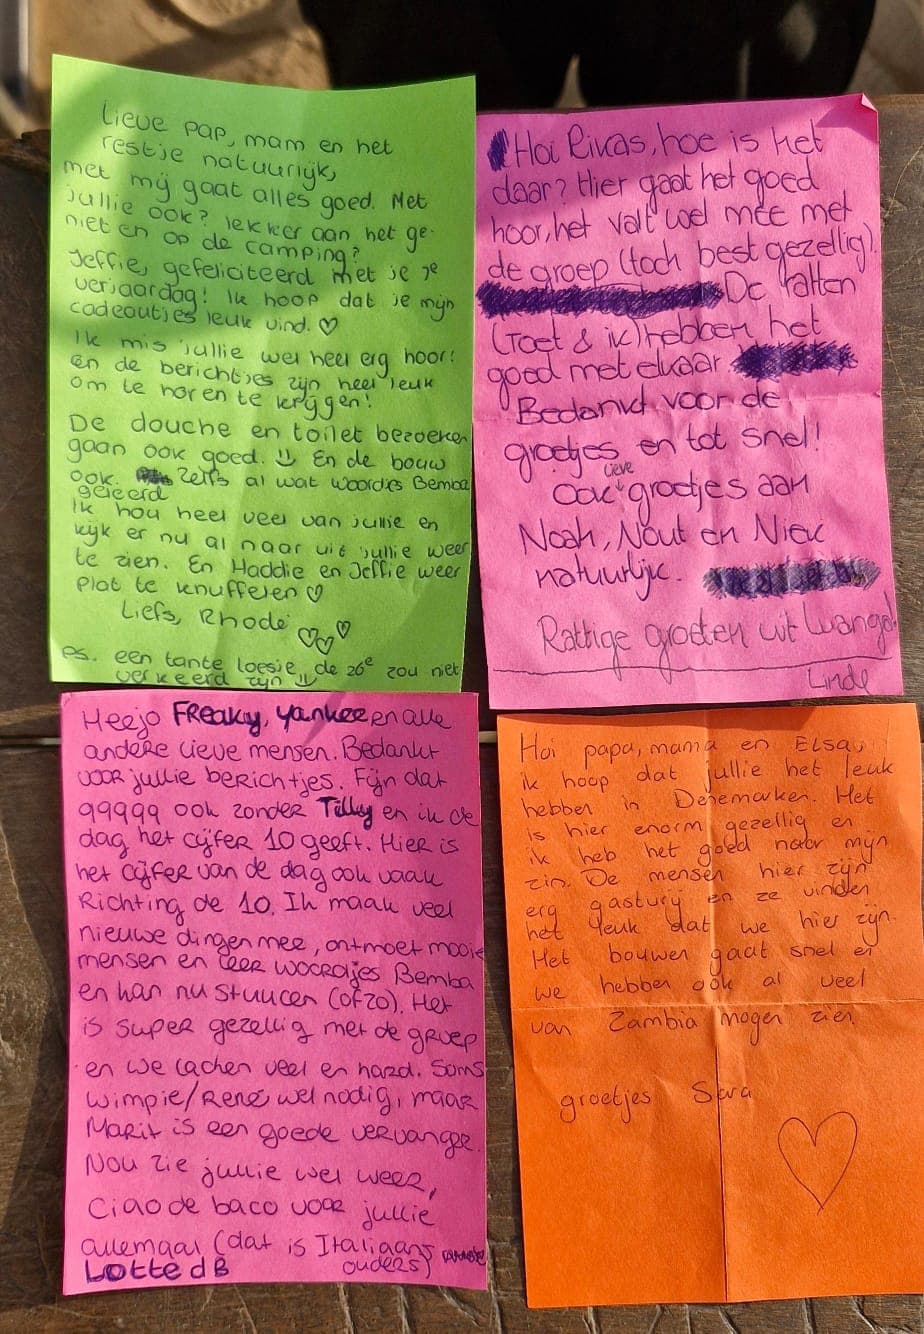 Lieve pap, mam en het
restje natuurlijk,
met mij gaat alles goed. Met
jullie ook? lekker aan het ge-
nieten op de camping?
Jeffie, gefeliciteerd met je 7e
verjaardag! Ik hoop dat je mijn
cadeautjes leuk vind. ♡
Ik mis jullie wel heel erg hoor!
En de berichtjes zijn heel leuk
om te horen te krijgen!
De douche en toilet bezoeken
gaan ook goed. En de bouw
ook. Zelfs al wat woordjes Bemba
geleerd
Ik hou heel veel van jullie en
kijk er nu al naar uit jullie weer
te zien. En Haddie en Jeffie weer
plat te knuffelen ♡
Liefs, Rhodé
ps. een tante loesie de 26e zou niet
verkeerd zijn
Hoi Rivas, hoe is het
daar? Hier gaat het goed
hoor, het valt wel mee met
de groep (toch best gezellig).
De ratten
(Toet & ik) hebben het
goed met elkaar
Bedankt voor de
groetjes en tot snel!
Ook lieve groetjes aan
Noah, Nout en Niek
natuurlijk.
Rattige groeten uit Lwanga!
Linde
Heejo FREaky, yankee en alle
andere lieve mensen. Bedankt
voor jullie berichtjes. Fijn dat
99999 ook zonder Tilly en ik de
dag het cijfer 10 geeft. Hier is
het cijfer van de dag ook vaak
Richting de 10. Ik maak veel
nieuwe dingen mee, ontmoet mooie
mensen en leer woordjes Bemba
en kan nu stuucen (of zo). Het
is super gezellig met de groep
en we lachen veel en hard. Soms
wimpie/René wel nodig, maar
Marit is een goede vervanger.
Nou zie jullie wel weer,
Ciao de baco voor jullie
allemaal (dat is Italiaans
ouders)
Lotte dB
Hoi papa, mama en Elsa,
ik hoop dat jullie het leuk
hebben in Denemarken. Het
is hier enorm gezellig en
ik heb het goed naar mijn
zin. De mensen hier zijn
erg gastvrij en ze vinden
het leuk dat we hier zijn.
Het bouwen gaat snel en
we hebben ook al veel
van Zambia mogen zien.
groetjes Sara